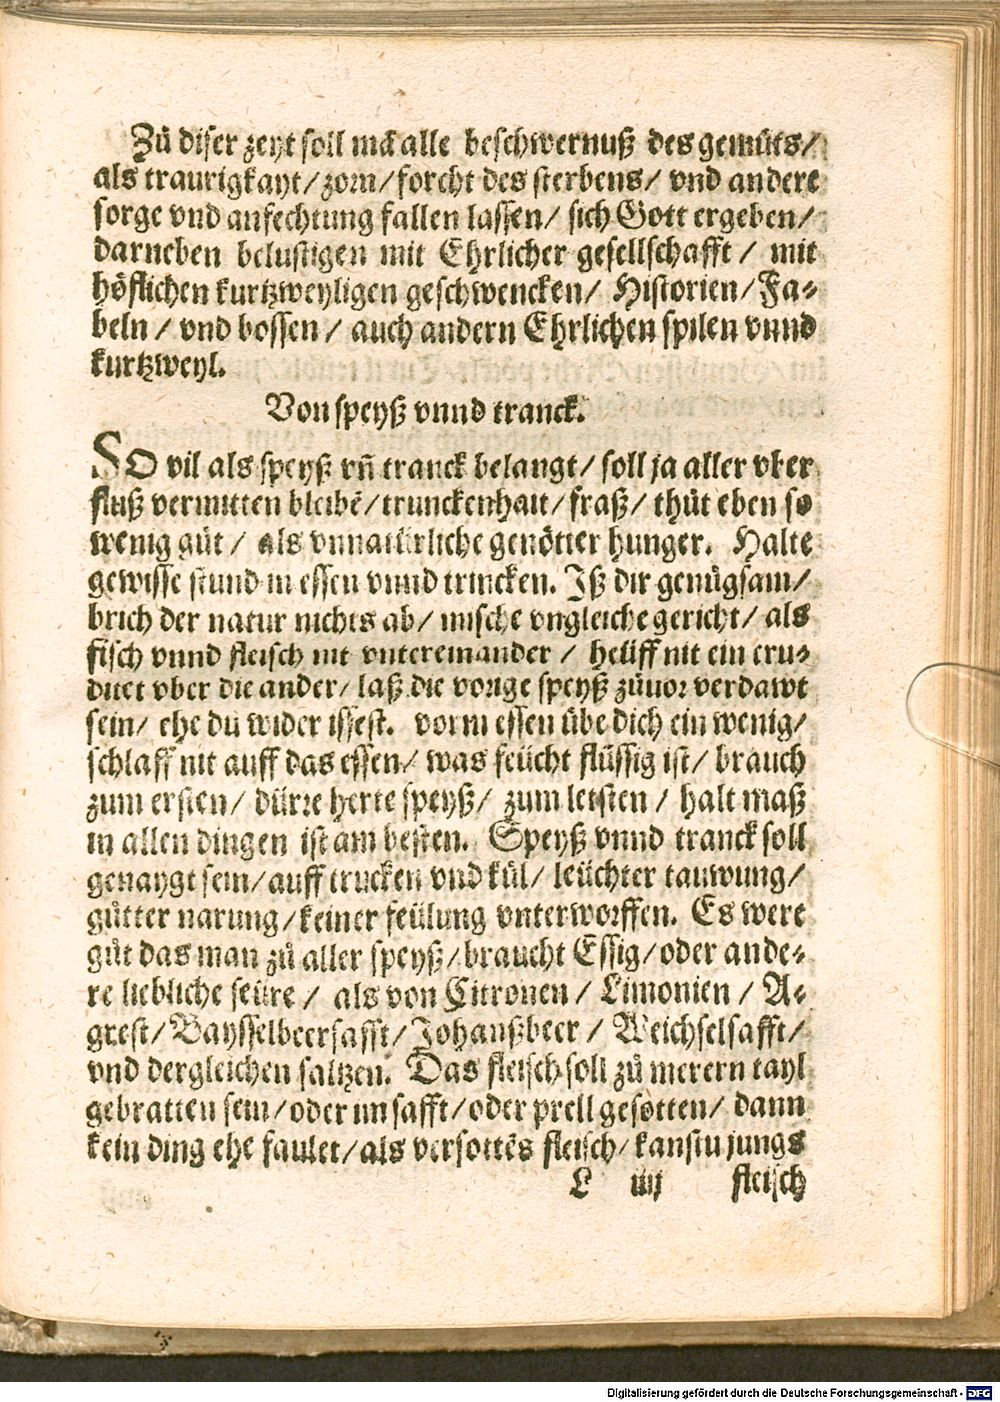 Zů diser zeyt soll mā alle beschwernuß des gemůts/
als traurigkayt/ zorn/ forcht des sterbens/ vnd andere
sorge vnd anfechtung fallen lassen/ sich Gott ergeben/
darneben belustigen mit Ehrlicher gesellschafft/ mit
höflichen kurtzweyligen geschwencken/ Historien/ Fa-
beln/ vnd bossen/ auch andern Ehrlichen spilen vnnd
kurtzweyl.
Von speyß vnnd tranck.
SO vil als speyß vñ tranck belangt/ soll ja aller vber
fluß vermitten bleibē/ trunckenhait/ fraß/ thůt eben so
wenig gůt/ als vnnatürliche genötter hunger. Halte
gewisse stund in essen vnnd trincken. Iß dir genůgsam/
brich der natur nichts ab/ mische vngleiche gericht/ als
fisch vnnd fleisch nit vntereinander/ heüff nit ein cru-
ditet vber die ander/ laß die vorige speyß zůuor verdawt
sein/ ehe du wider issest. vorm essen übe dich ein wenig/
schlaff nit auff das essen/ was feücht flüssig ist/ brauch
zum ersten/ dürre herte speyß/ zum letsten/ halt maß
in allen dingen ist am besten. Speyß vnnd tranck soll
genaygt sein/ auff trucken vnd kül/ leüchter tauwung/
gůtter narung/ keiner feülung vnterworffen. Es were
gůt das man zů aller speyß/ braucht Essig/ oder ande-
re liebliche seüre/ als von Citronen/ Limonien/ A-
grest/ Baysselbeersafft/ Johanßbeer/ Weichselsafft/
vnd dergleichen saltzen. Das fleisch soll zů merern tayl
gebratten sein/ oder im safft/ oder prell gesötten/ dann
kein ding ehe faulet/ als versottēs fleisch/ kanstu jungs
L iiij fleisch
Digitalisierung gefördert durch die Deutsche Forschungsgemeinschaft - DFG